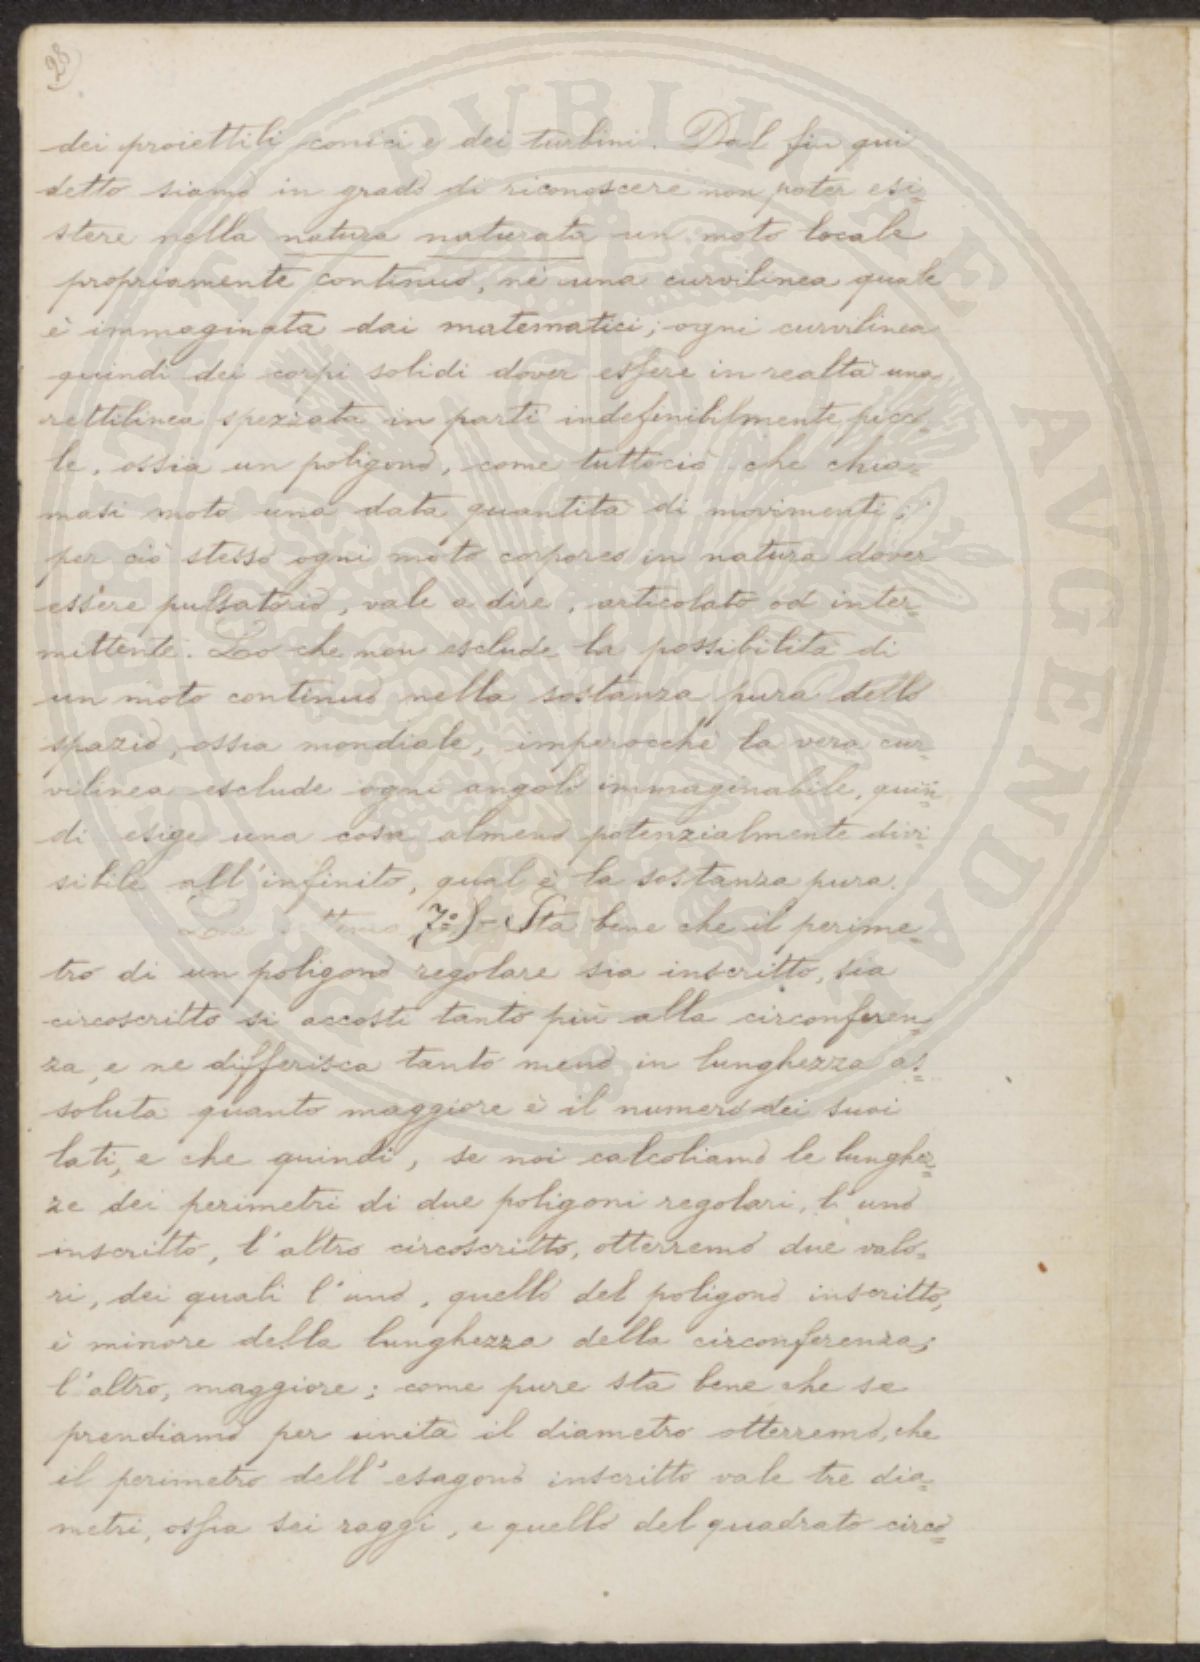 28
dei proiettili conici e dei turbini. Dal fin qui
detto siamo in grado di riconoscere non poter esi-
stere nella natura naturata un moto locale
propriamente continuo, nè una curvilinea quale
è immaginata dai matematici; ogni curvilinea
quindi dei corpi solidi dover essere in realtà una
rettilinea spezzata in parti indefinibilmente picco-
le, ossia un poligono, come tuttociò che chia=
masi moto una data quantità di movimenti;
per ciò stesso ogni moto corporeo in natura dover
essere pulsatorio, vale a dire, articolato od inter=
mittente. Lo che non esclude la possibilità di
un moto continuo nella sostanza pura dello
spazio, ossia mondiale, imperocchè la vera cur=
vilinea esclude ogni angolo immaginabile, quin=
di esige una cosa almeno potenzialmente divi=
sibile all'infinito, qual è la sostanza pura.
7º)- Sta bene che il perime=
tro di un poligono regolare sia inscritto, sia
circoscritto si accosti tanto più alla circonferen=
za, e ne differisca tanto meno in lunghezza as=
soluta quanto maggiore è il numero dei suoi
lati, e che quindi, se noi calcoliamo le lunghez=
ze dei perimetri di due poligoni regolari, l'uno
inscritto, l'altro circoscritto, otterremo due valo=
ri, dei quali l'uno, quello del poligono inscritto,
è minore della lunghezza della circonferenza;
l'altro, maggiore; come pure sta bene che se
prendiamo per unità il diametro otterremo, che
il perimetro dell'esagono inscritto vale tre dia=
metri, ossia sei raggi, e quello del quadrato circo=
PVBLICAE AVGENDAE